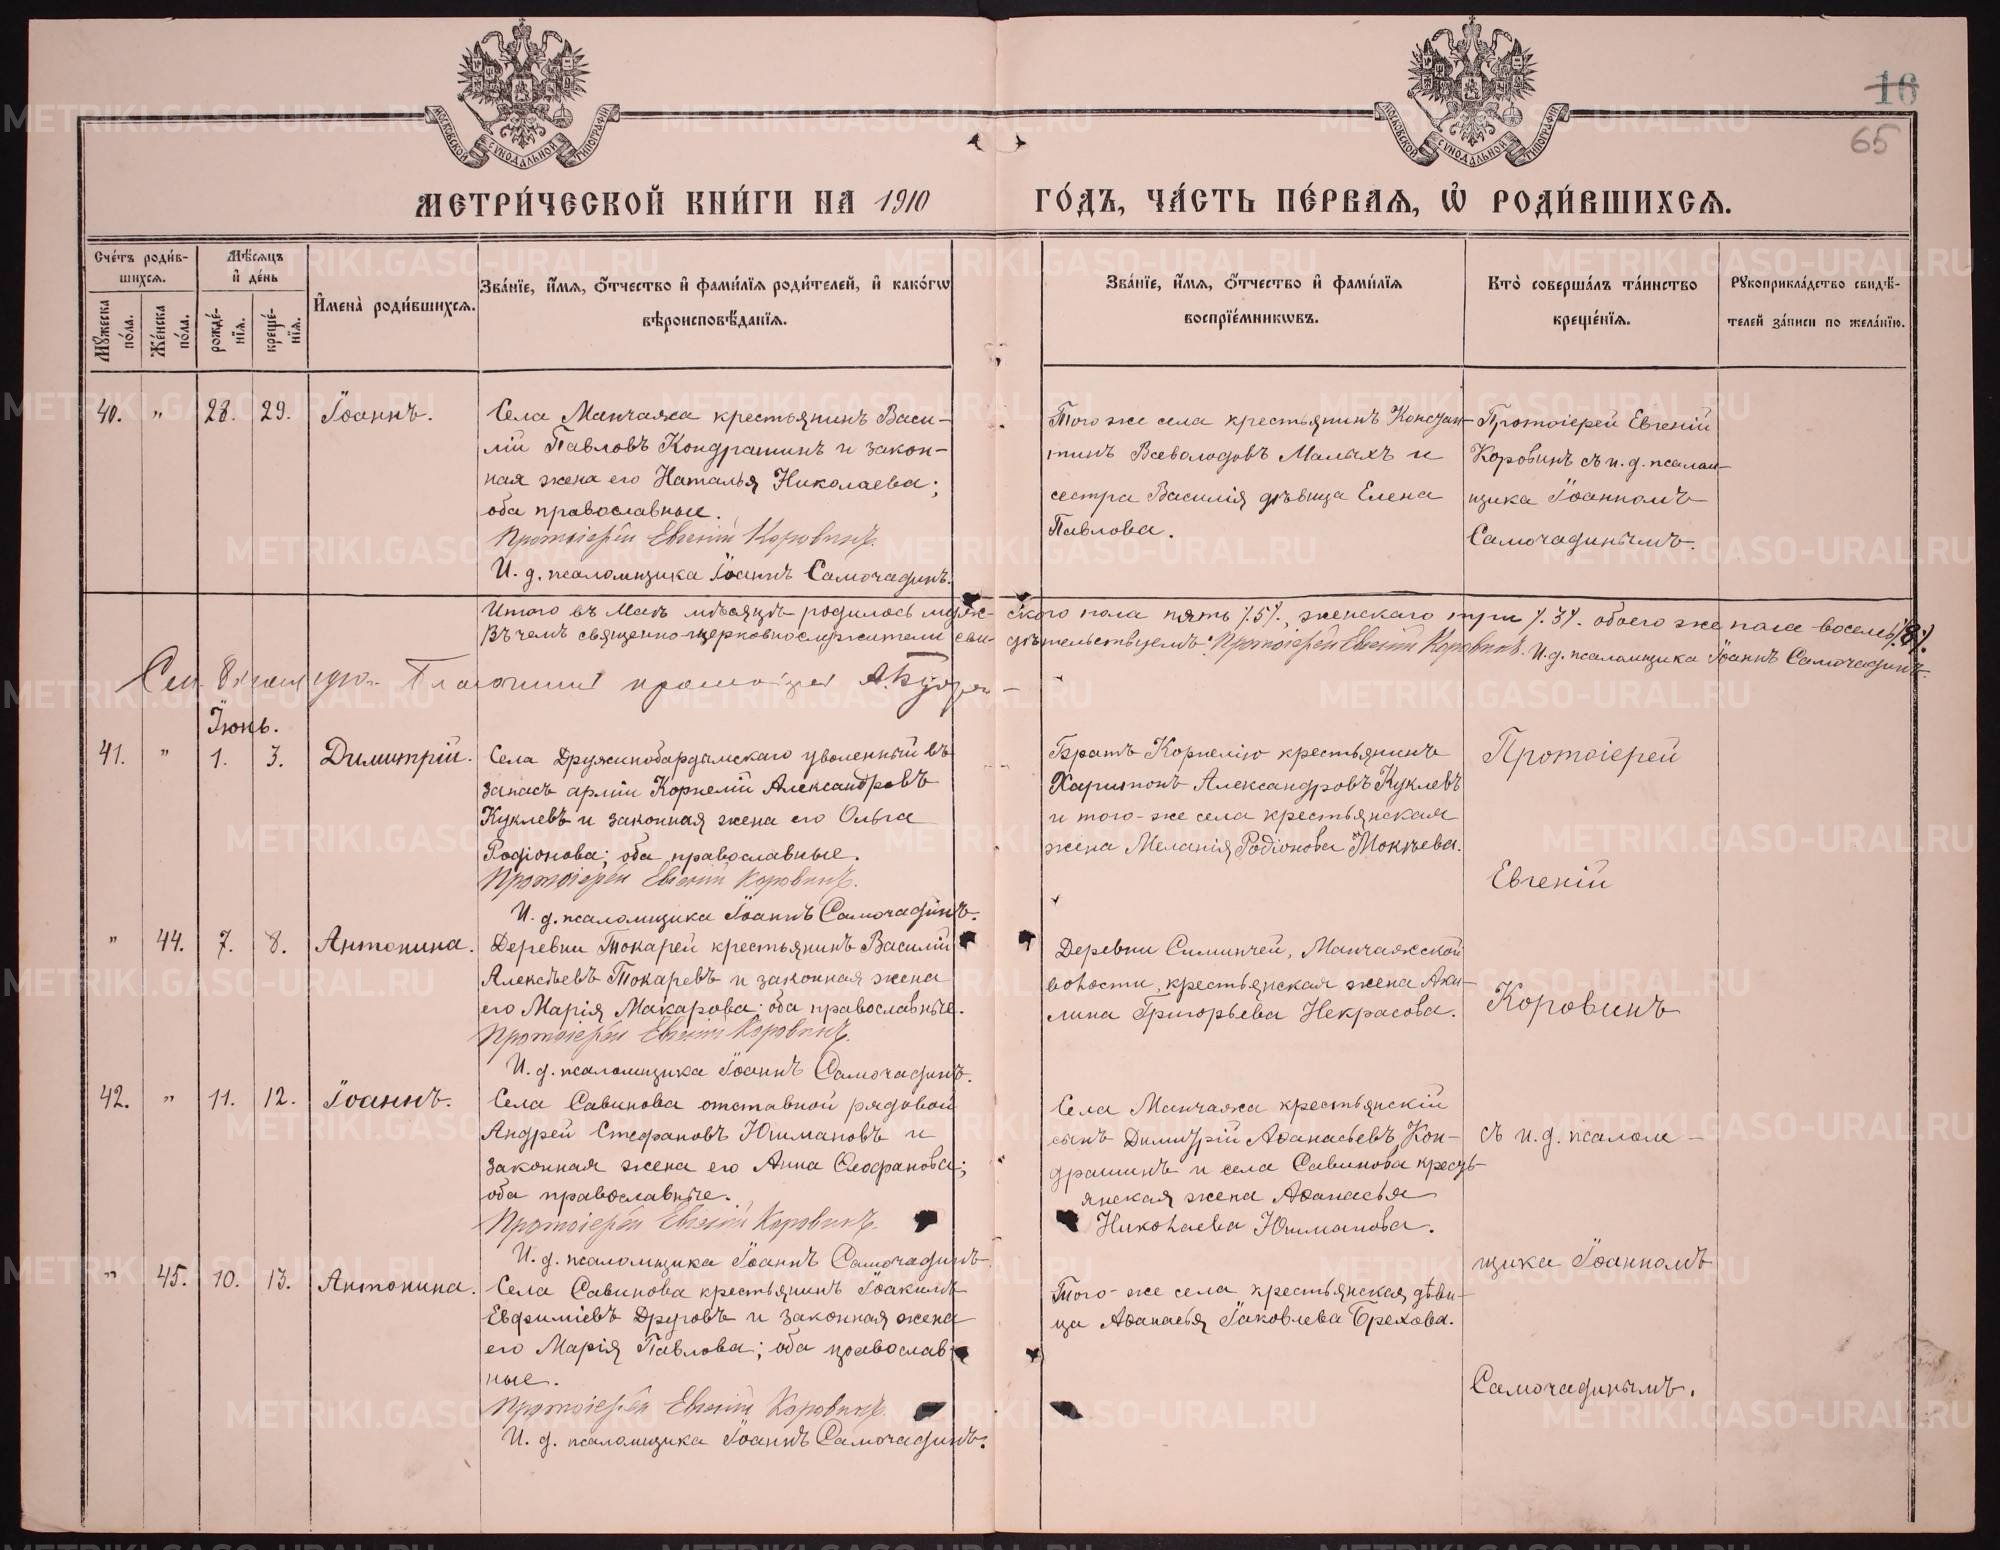 16
65
МОСКОВСКОЙ СѴНОДАЛЬНОЙ ТИПОГРАФІИ
МОСКОВСКОЙ СѴНОДАЛЬНОЙ ТИПОГРАФІИ
МЕТРИ́ЧЕСКОЙ КНИ́ГИ НА 1910 ГО́ДЪ, ЧА́СТЬ ПЕ́РВАѦ, Ѽ РОДИ́ВШИХСѦ.
Сче́тъ роди́в-
шихсѧ.
Мѣ́сѧцъ
и҆ де́нь
Мꙋ́жеска по́ла.
Же́нска по́ла.
рожде́-
нїѧ.
креще́-
нїѧ.
И҆мена̀ роди́вшихсѧ.
Зва́нїе, и҆́мѧ, ѻ҆́тчество и҆ фами́лїѧ роди́телей, и҆ како́гѡ
вѣроисповѣ́данїѧ.
Зва́нїе, и҆́мѧ, ѻ҆́тчество и҆ фами́лїѧ
воспрїе́мникѡвъ.
Кто̀ соверша́лъ та́инство
креще́нїѧ.
Рꙋкоприкла́дство свидѣ́-
телей за́писи по жела́нїю.
40. " 28. 29. Іоаннъ.
Села Манчажа крестьянинъ Васи-
лій Павловъ Кондрашинъ и закон-
ная жена его Наталья Николаева;
оба православные.
Протоіерей Евгеній Коровинъ.
И. д. псаломщика Іоаннъ Самочадинъ.
Того же села крестьянинъ Констан-
тинъ Всеволодовъ Малыхъ и
сестра Василія дѣвица Елена
Павлова.
Протоіерей Евгеній
Коровинъ съ и. д. псалом-
щика Іоанномъ
Самочадинымъ.
Итого въ Маѣ мѣсяцѣ родилось мужскаго пола пять /5/., женскаго три /3/. обоего же пола восемь /8/.
Въ чемъ священно-церковнослужители свидѣтельствуемъ: Протоіерей Евгеній Коровинъ. И. д. псаломщика Іоаннъ Самочадинъ.
Іюнь.
41. " 1. 3. Димитрій.
Села Дружинобардымскаго уволенный въ
запасъ арміи Корнелій Александровъ
Куклевъ и законная жена его Ольга
Родіонова; оба православные.
Протоіерей Евгеній Коровинъ.
И. д. псаломщика Іоаннъ Самочадинъ.
Братъ Корнелію крестьянинъ
Харитонъ Александровъ Куклевъ
и того-же села крестьянская
жена Меланія Родіонова Мокѣева.
Протоіерей
Евгеній
" 44. 7. 8. Антонина.
Деревни Токарей крестьянинъ Василій
Алексѣевъ Токаревъ и законная жена
его Марія Макарова; оба православные.
Протоіерей Евгеній Коровинъ.
И. д. псаломщика Іоаннъ Самочадинъ.
Деревни Симинчей, Манчажской
волости, крестьянская жена Аки-
лина Григорьева Некрасова.
Коровинъ
42. " 11. 12. Іоаннъ.
Села Савинова отставной рядовой
Андрей Стефановъ Юшмановъ и
законная жена его Анна Ѳеофанова;
оба православные.
Протоіерей Евгеній Коровинъ.
И. д. псаломщика Іоаннъ Самочадинъ
Села Манчажа крестьянскій
сынъ Димитрій Аѳанасьевъ Кон-
драшинъ и села Савинова кресть-
янская жена Аѳанасья
Николаева Юшманова.
съ и. д. псалом-
щика Іоанномъ
" 45. 10. 13. Антонина.
Села Савинова крестьянинъ Іоакимъ
Евфиміевъ Друговъ и законная жена
его Марія Павлова; оба православ-
ные.
Протоіерей Евгеній Коровинъ.
И. д. псаломщика Іоаннъ Самочадинъ.
Того-же села крестьянская дѣви-
ца Аѳанасья Іаковлева Брехова.
Самочадинымъ.
METRIKI.GASO-URAL.RU